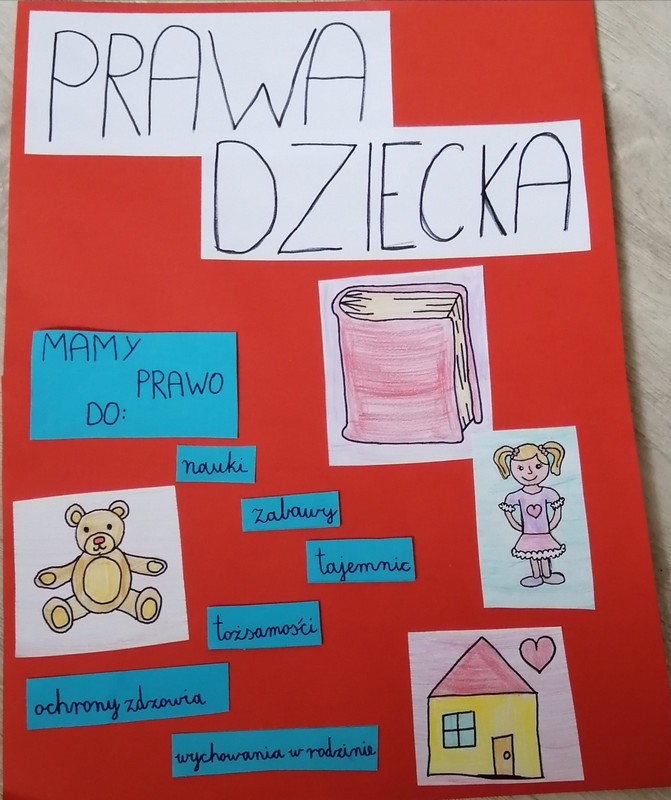 PRAWA
DZIECKA
MAMY
PRAWO
DO:
nauki
zabawy
tajemnic
tożsamości
ochrony zdrowia
wychowania w rodzinie